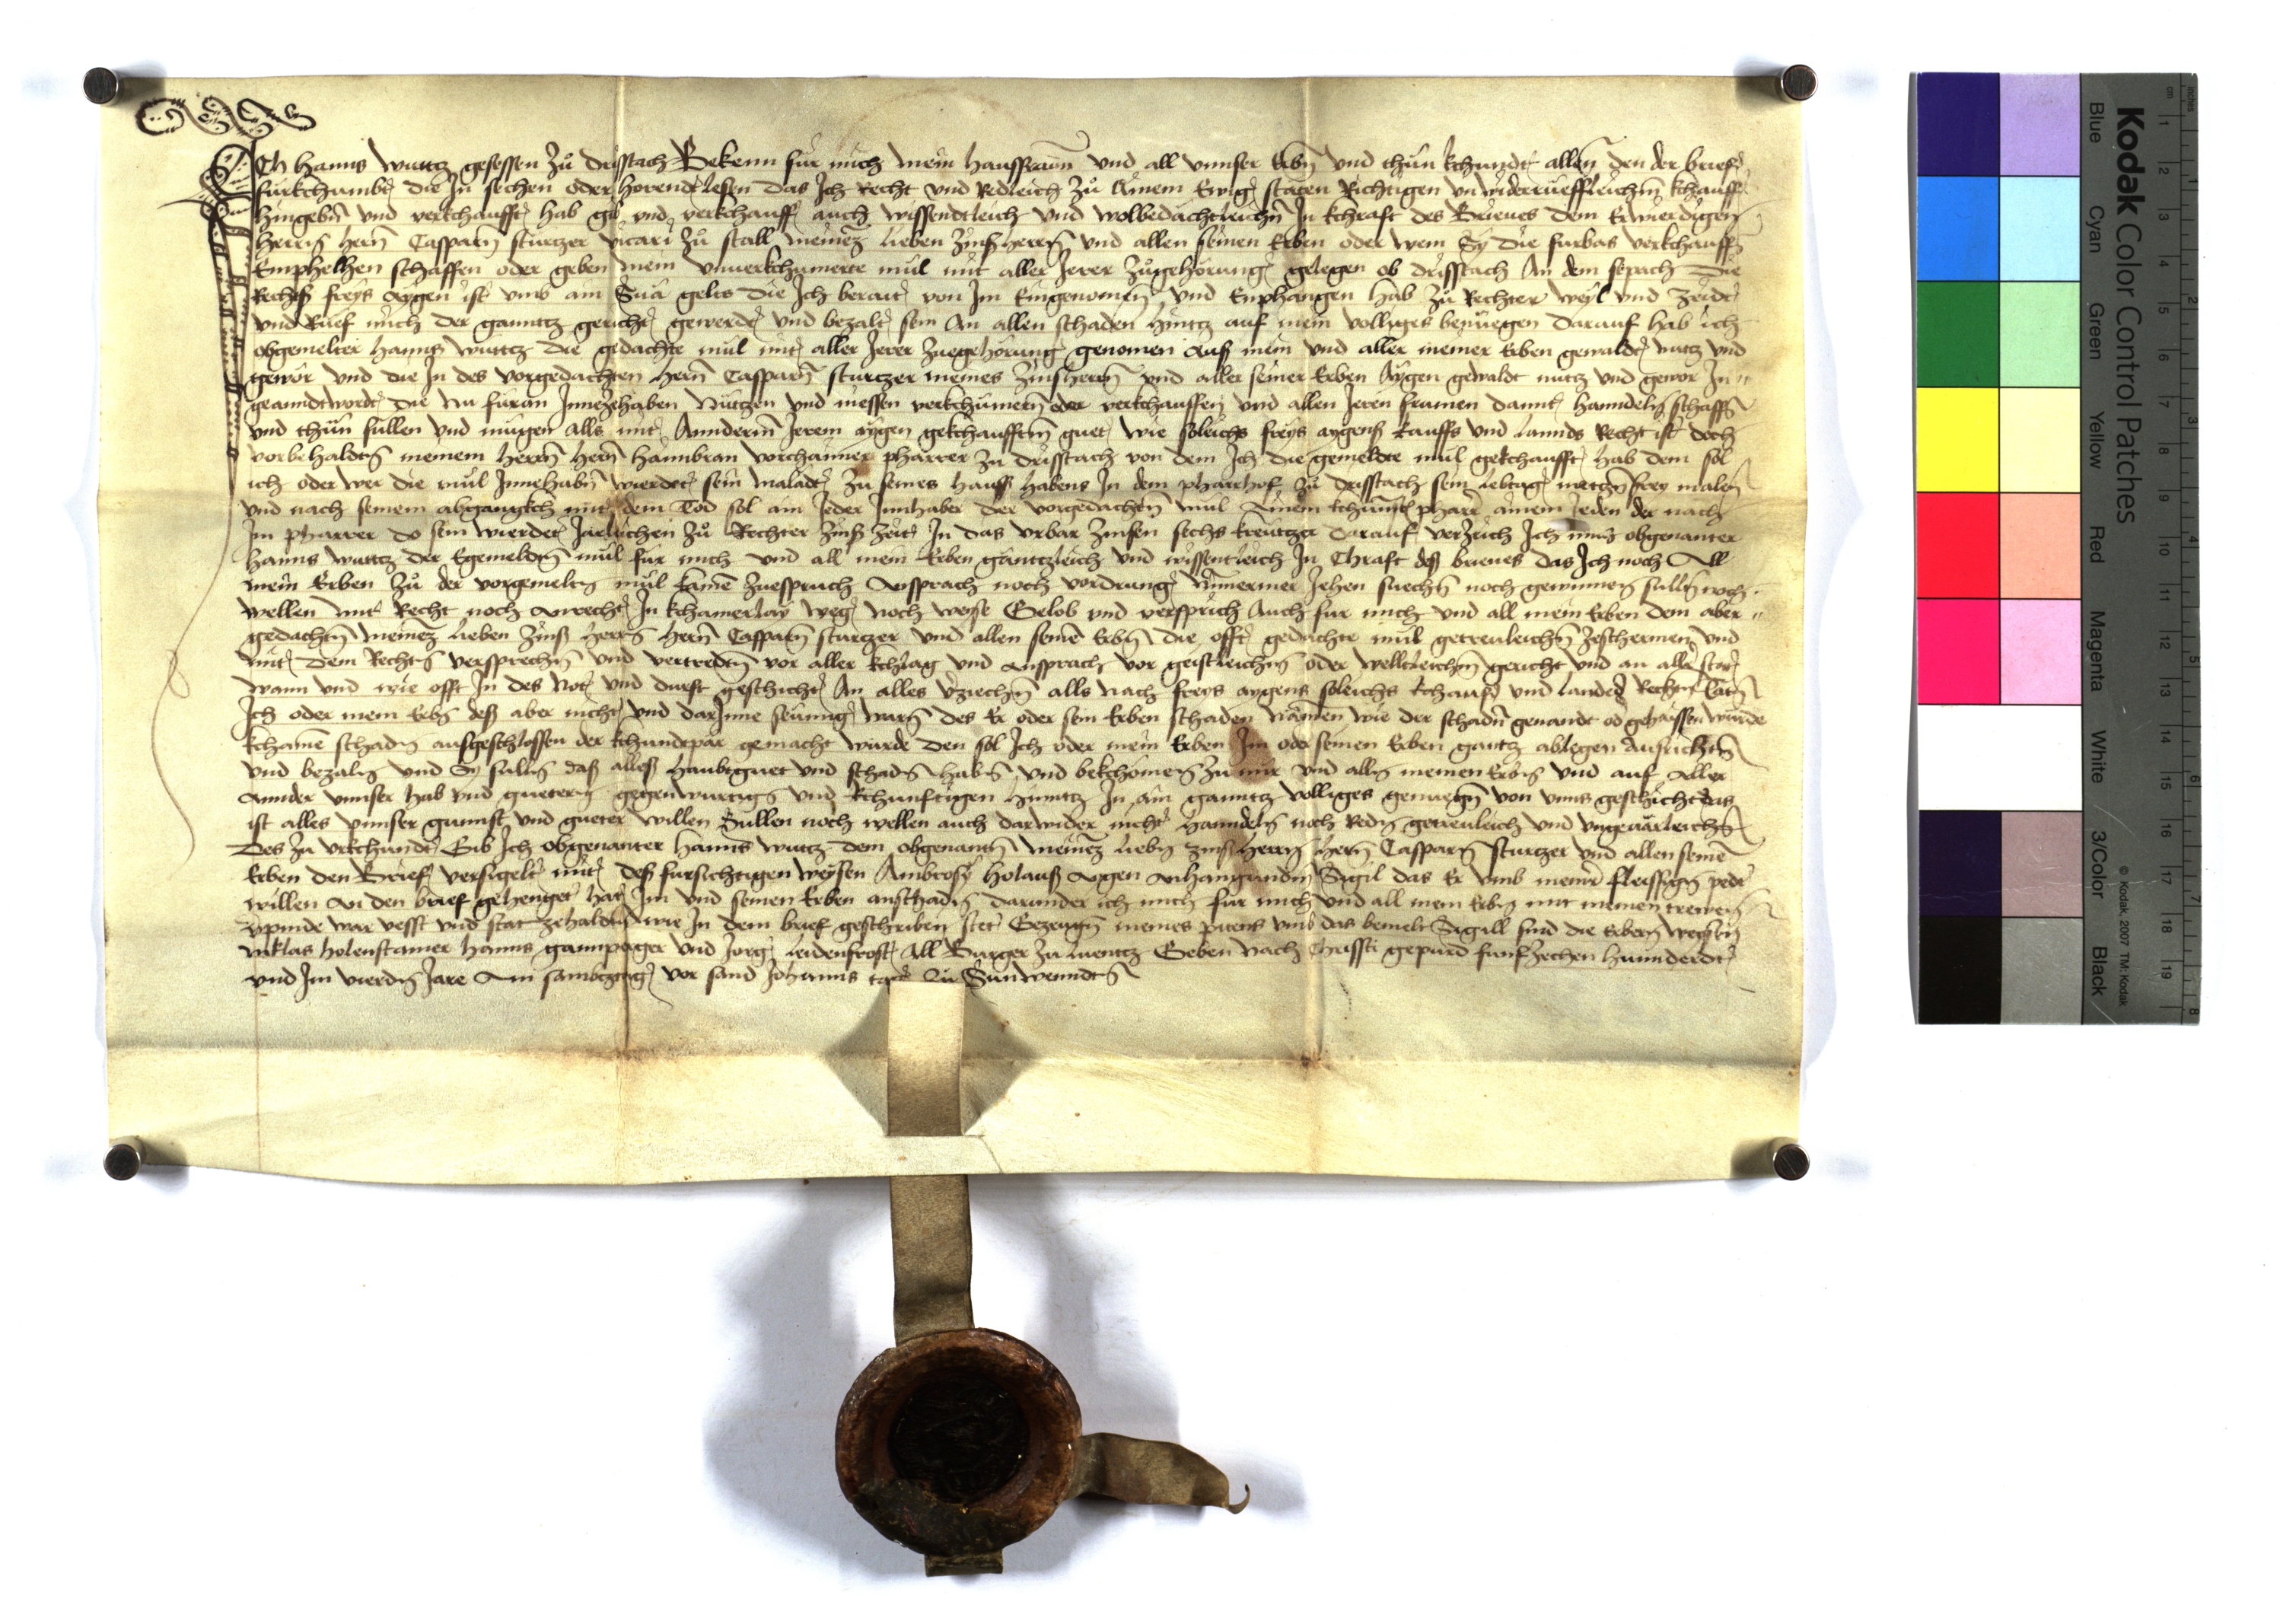 Ich Hanns Wuttz gesessen Zů drasstach Bekenn für mich mein hausfrawn und all unnser Erbn und thůn kchundt allen den der brief
fürkchumbt die In sechen oder horendt lesen das Ich Recht und Redleich Zů Ainem Ewigen stäten Richtigen unwiderrüeffleichen kchauff
hingebn und verkchaufft hab gib und verkchauff auch wissendtleich und wolbedachtleichn In kchraft des Brieues dem Erwierdigen
herrn hern Casparn sturtzer vicari Zů stall meinez lieben Zinsherrn und allen seinen Erben oder wem Sy die furbas verkchauffn
Emphelhen schaffen oder geben mein unuerkchumerte mül mit aller Jerer Zůgehörung gelegen ob drasstach An dem sepach Die
Rechtz freys Aygen ist umb ain Sua gelts die Ich berait von Im Eingenomen und Emphangen hab Zů Rechter weyl und Zeidt
und Rüef mich der ganntz gericht gewerdt und bezalt sein An allen schaden hintz auf mein volliges benüegen Darauf hab ich
obgemelter Hanns Wuttz die gedachte mül mit aller Jerer Zuegehörung genomen Aus mein und aller meiner Erben gewaldt nutz und
gewör und die In des vorgedachten hern Casparn sturtzer meines Zinsherrn und aller seiner Erben Aygen gewaldt nutz und gewör In
geanndtwordt die Nu füran Innezehaben Nützen und niessen verkchümern oder verkchauffen und allen Jeren frumen damit hanndeln schaffn
und thůn süllen und mügen Alls mit Annderm Jerem aygen gekchaufften guet wie soleichs freys aygens kauffs und lannds Recht ist doch
vorbehaldtn meinem herrn hern hannbran vorchaimer pharrer Zu drasstach von dem Ich die gemeldte mül gekchaufft hab dem sol
ich oder wer die mül Innehabn wierdet sein maladt Zu seines hauss habens In dem pharrhof Zů drasstach sein lebtag metzn frey maln
und nach seinem abgangkch mit dem Tod sol ain Jeder Innhaber der vorgedachten mül Ainem kchünftn pharrer ainem Jeden der nach
Im pharrer do sein wierdet Järlichen Zů Rechter Zinß Zeit In das urbar Zinsen sechs kreutzer Darauf verZeich Ich mich obgenanter
Hanns Wuttz der Egemeldtn mül für mich und all mein Erben gäntzleich und wissentleich In Chraft deß brieues das Ich noch All
mein Erben Zů der vorgemeltn mül kaine Zuespruch Ansprach noch vordrung Nimermer Jehen suechn noch gewinnen sülln noch
wellen mit Recht noch Anrecht In kchainerlay weg noch weyse Gelob und versprich Auch für mich und all mein Erben dem aber
gedachtn meinez lieben Zinß herrn hern Casparn sturtzer und allen seine Erbn die offt gedachte mül getreuleichn Zeschermen und
mit dem Rechtn versprechn und vertredtn vor aller kchlag und Ansprach vor geistleichn oder welltleichen gericht und an aller stat
wann und wie offt In des Not und durft geschicht An alles verziechn alls nach freys aygens soleichs kchaufs und Landes Rechtn Tätn
Ich oder mein Erbn deß aber nicht und darInne seumig warn des Er oder sein Erben schaden Nämen wie der schadn genandt od gehaissen wurde
kchaine schadn ausgeschlossen der kchundtpar gemacht wurde den sol Ich oder mein Erben Im oder seinen Erben gantz ablegen Ausrichtn
und bezaln und Sy sülln daß alles haubtguet und schadn habn und bekchömen Zu mir und alln meinen Erbn und auf Aller
Annder unnser hab und guetern gegenwurtigs und kchunftigen hinntz In ain ganntz volliges genuegn von unns geschicht das
ist alles unnser gunnst und gueter willen Süllen noch wellen auch darwider nicht hanndeln noch Redn getreuleich und ungeuärleichn
Des Zu urkchundt Gib Ich obgenanter Hanns Wuttz dem obgenantn meinez liebn Zinß herrn hern Casparn sturtzer und allen seine
Erben den Brief versigelt mit deß fürsichtigen weysen Ambrosy holauß Aygen Anhangundn Sigil das Er umb meine fleissign pedt
willen An den brief gehenget hat Im und seinen Erben anschadn darunder ich mich für mich und all mein Erbn mit meinen trewen
verpinde war vesst und stät Zehaldtn wie In dem brief geschriben stet Gezeugn meines pitens umb das bemelt Sigill sind die Erbern weysen
Niklas holenstainer hanns gamperger und Jorg leidenfrost All Burger Zu luentz Geben nach Christi gepurd funfZechen hunnderdt
und Im vierdn Jare Am sambtztag vor sand Johanns tag Zu Sunwenndtn
Kodak Color Control Patches
Blue Cyan Green Yellow Red Magenta White 3/Color Black
© Kodak, 2007 TM: Kodak
cm 1 2 3 4 5 6 7 8 9 10 11 12 13 14 15 16 17 18 19
inches 1 2 3 4 5 6 7 8